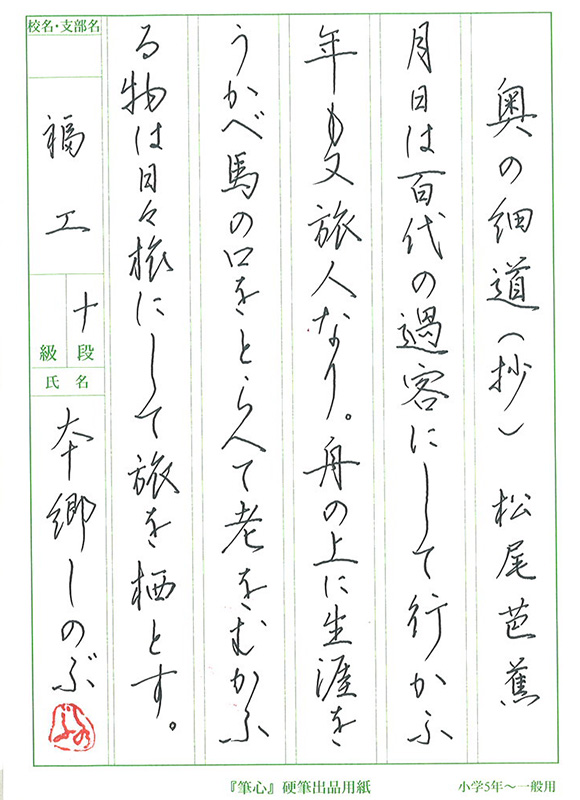 奥の細道(抄) 松尾芭蕉
月日は百代の過客にして行かふ
年も又旅人なり。舟の上に生涯を
うかべ馬の口をとらへて老をむかふ
る物は日々旅にして旅を栖とす。
校名・支部名
福工
十
級段
氏名
本郷しのぶ
『筆心』硬筆出品用紙
小学5年〜一般用